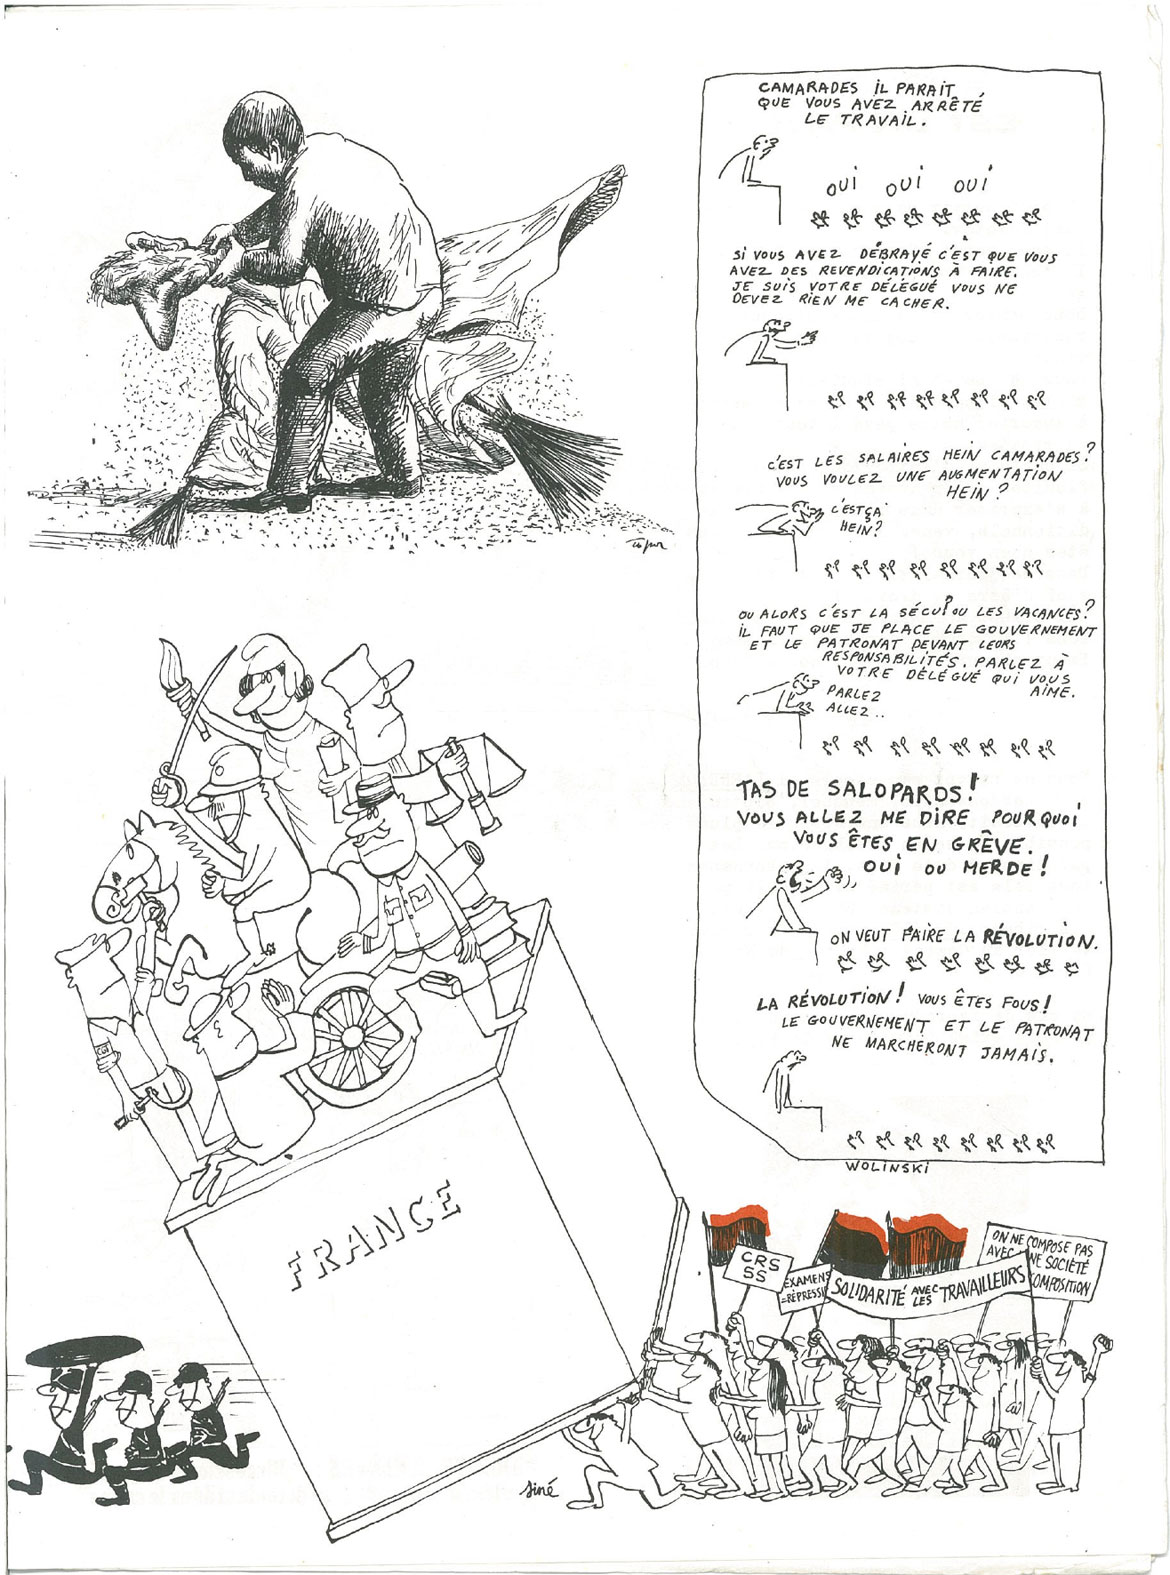 CAMARADES IL PARAIT
QUE VOUS AVEZ ARRÊTÉ
LE TRAVAIL.
OUI OUI OUI
SI VOUS AVEZ DÉBRAYÉ C'EST QUE VOUS
AVEZ DES REVENDICATIONS À FAIRE.
JE SUIS VOTRE DÉLÉGUÉ VOUS NE
DEVEZ RIEN ME CACHER.
C'EST LES SALAIRES HEIN CAMARADES?
VOUS VOULEZ UNE AUGMENTATION
HEIN?
C'EST ÇA
HEIN?
OU ALORS C'EST LA SÉCU? OU LES VACANCES?
IL FAUT QUE JE PLACE LE GOUVERNEMENT
ET LE PATRONAT DEVANT LEURS
RESPONSABILITÉS. PARLEZ À
VOTRE DÉLÉGUÉ QUI VOUS
AIME.
PARLEZ
ALLEZ..
TAS DE SALOPARDS!
VOUS ALLEZ ME DIRE POURQUOI
VOUS ÊTES EN GRÊVE.
OUI OU MERDE!
ON VEUT FAIRE LA RÉVOLUTION.
LA RÉVOLUTION! VOUS ÊTES FOUS!
LE GOUVERNEMENT ET LE PATRONAT
NE MARCHERONT JAMAIS.
WOLINSKI
Topor
CGT
FRANCE
CRS
SS
EXAMENS
=RÉPRESSI
SOLIDARITÉ AVEC LES TRAVAILLEURS
ON NE COMPOSE PAS
AVEC UNE SOCIÉTÉ
COMPOSITION
siné